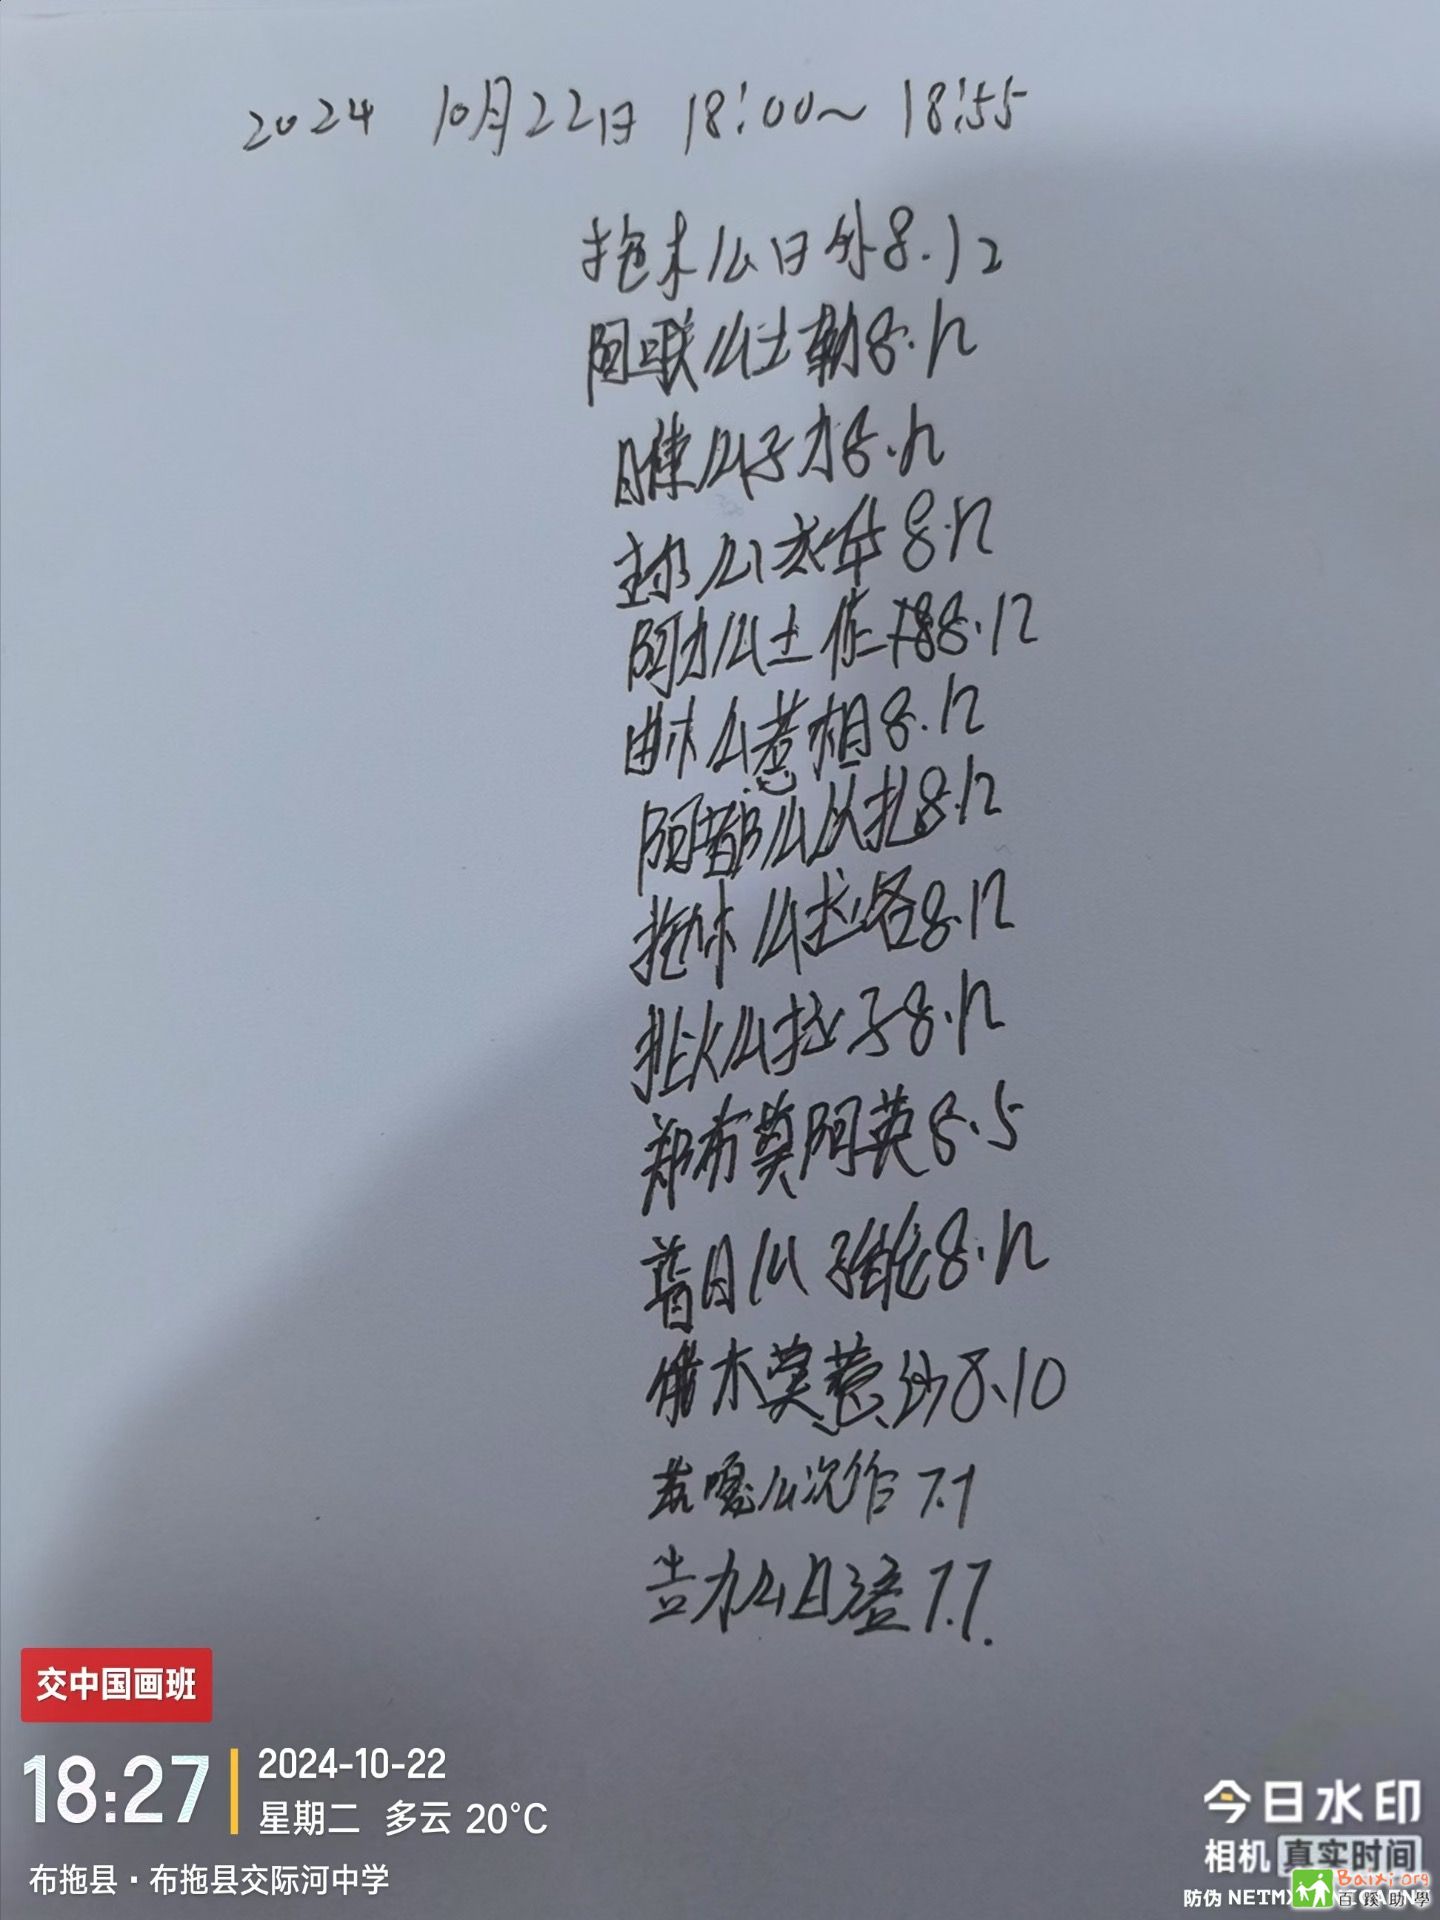 2024 10月22日 18:00~18:55
拖木么日外8.12
阿联么土勒8.12
么子才8.12
么 8.12
阿力么土作 8.12
曲木么惹相8.12
阿都么从扎8.12
拖木么拉各8.12
么拉子8.12
郑布莫阿英8.5
昔日么 8.12
俄木莫惹沙8.10
嘎么次作7.1
吉力么日 7.7.
交中国画班
18:27
2024-10-22
星期二 多云 20°C
布拖县·布拖县交际河中学
今日水印
相机 真实时间
防伪 NETM
Baixi.org
百蹊助學